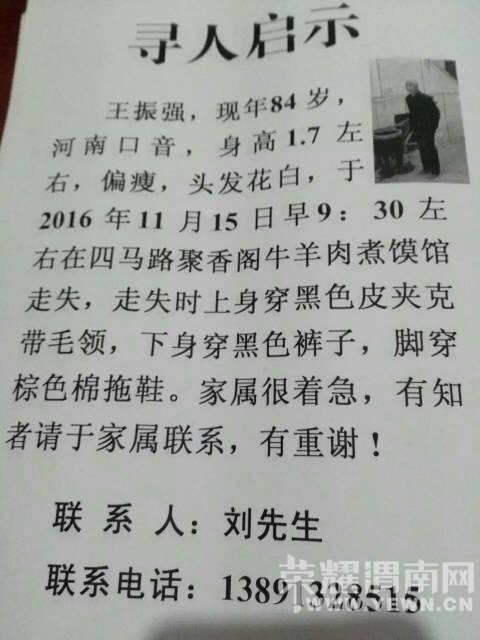 寻人启示
王振强，现年84岁，
河南口音，身高1.7左
右，偏瘦，头发花白，于
2016年11月15日早9：30左
右在四马路聚香阁牛羊肉煮馍馆
走失，走失时上身穿黑色皮夹克
带毛领，下身穿黑色裤子，脚穿
棕色棉拖鞋。家属很着急，有知
者请于家属联系，有重谢！
联系人：刘先生
联系电话：13891328515
荣耀渭南网
WWW.YEWN.CN